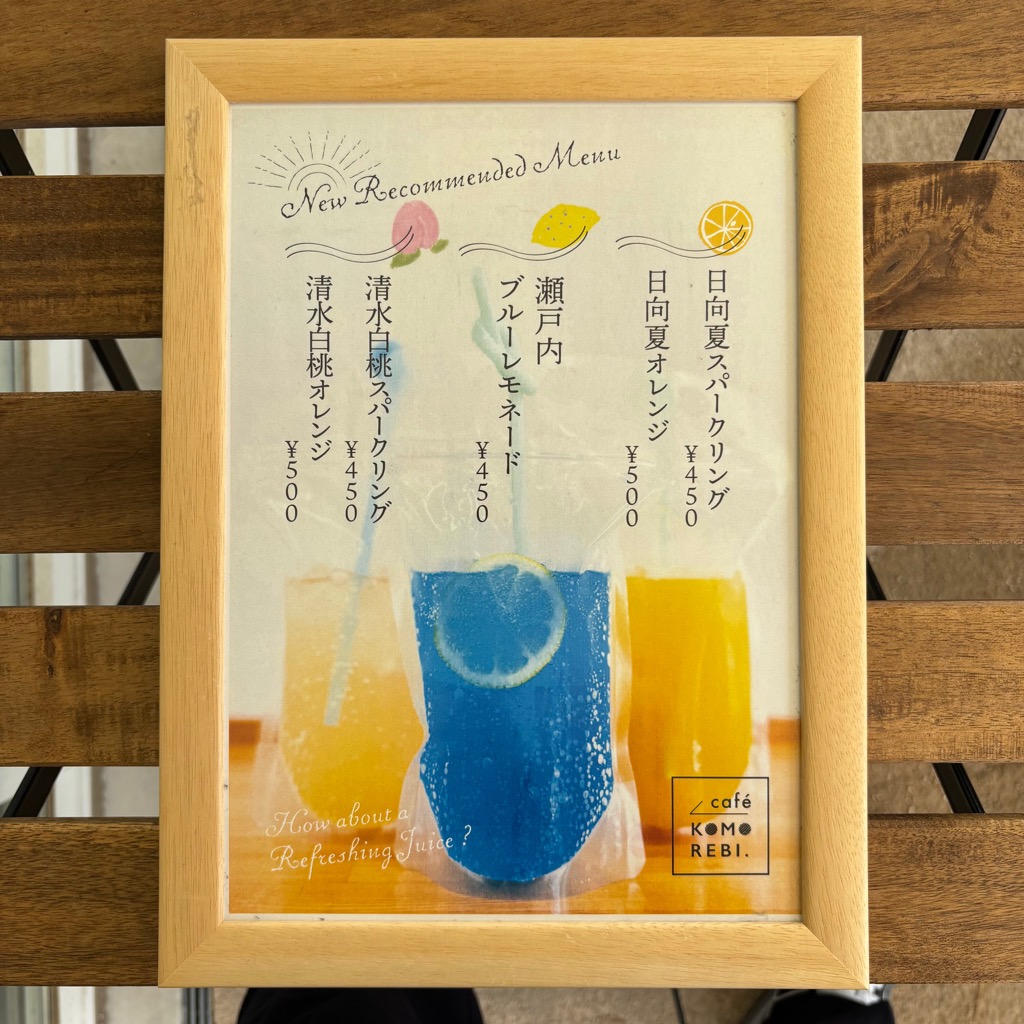 New Recommended Menu
日向夏スパークリング
¥450
日向夏オレンジ
¥500
瀬戸内
ブルーレモネード
¥450
清水白桃スパークリング
¥450
清水白桃オレンジ
¥500
How about a
Refreshing Juice ?
café
KOMO
REBI.